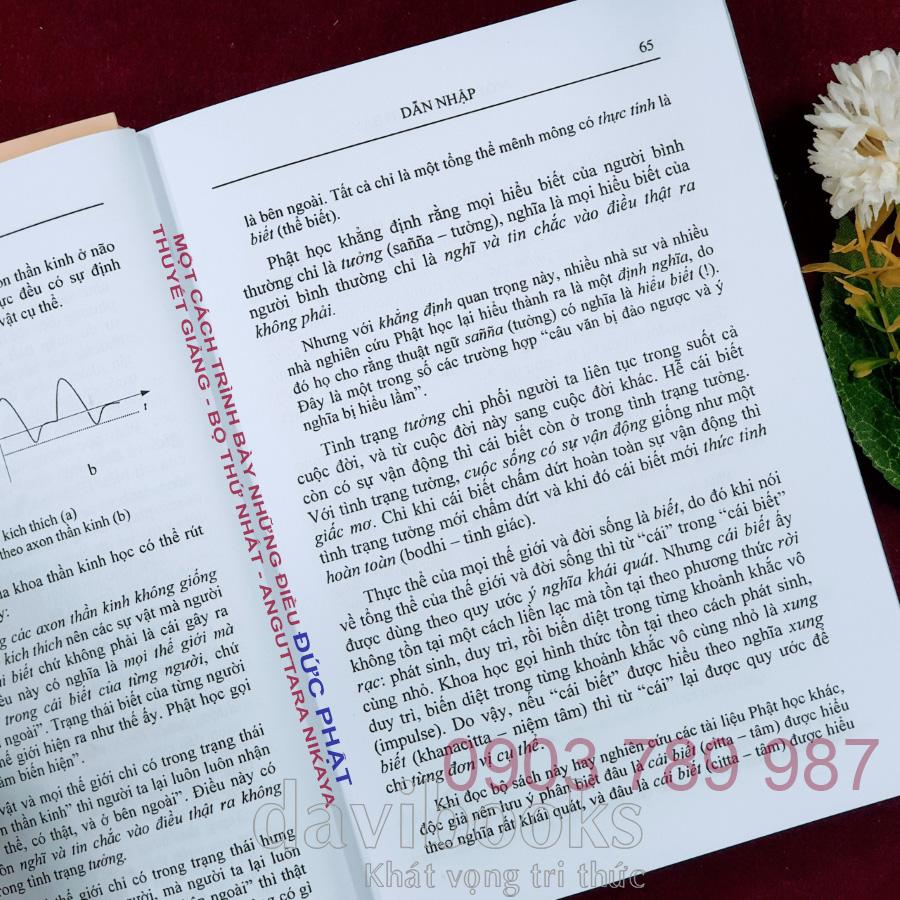 on thần kinh ở não
ực đều có sự định
vật cụ thể.
t
b
kích thích (a)
theo axon thần kinh (b)
a khoa thần kinh học có thể rút
y:
g các axon thần kinh không giống
kích thích nên các sự vật mà người
i biết chứ không phải là cái gây ra
ều này có nghĩa là mọi thế giới mà
trong cái biết của từng người, chứ
ngoài”. Trạng thái biết của từng người
hế giới hiện ra như thế ấy. Phật học gọi
âm biến hiện”.
vật và mọi thế giới chỉ có trong trạng thái
n thần kinh” thì người ta lại luôn luôn nhân
thể, có thật, và ở bên ngoài”. Điều này có
ôn nghĩ và tin chắc vào điều thật ra không
rong tình trạng tưởng.
thế giới chỉ có trong trạng thái hưng
người, mà người ta lại luôn
ên ngoài” thì thật
g có gì
65
DẪN NHẬP
là bên ngoài. Tất cả chỉ là một tổng thể mênh mông có thực tính là
biết (thể biết).
Phật học khẳng định rằng mọi hiểu biết của người bình
thường chỉ là tưởng (sañña – tưởng), nghĩa là mọi hiểu biết của
người bình thường chỉ là nghĩ và tin chắc vào điều thật ra
không phải.
Nhưng với khẳng định quan trọng này, nhiều nhà sư và nhiều
nhà nghiên cứu Phật học lại hiểu thành ra là một định nghĩa, do
đó họ cho rằng thuật ngữ sañña (tưởng) có nghĩa là hiểu biết (!).
Đây là một trong số các trường hợp “câu văn bị đảo ngược và ý
nghĩa bị hiểu lầm”.
Tình trạng tưởng chi phối người ta liên tục trong suốt cả
cuộc đời, và từ cuộc đời này sang cuộc đời khác. Hễ cái biết
còn có sự vận động thì cái biết còn ở trong tình trạng tưởng.
Với tình trạng tưởng, cuộc sống có sự vận động giống như một
giấc mơ. Chỉ khi cái biết chấm dứt hoàn toàn sự vận động thì
tình trạng tưởng mới chấm dứt và khi đó cái biết mới thức tỉnh
hoàn toàn (bodhi – tỉnh giác).
Thực thể của mọi thế giới và đời sống là biết, do đó khi nói
về tổng thể của thế giới và đời sống thì từ “cái” trong “cái biết”
được dùng theo quy ước ý nghĩa khái quát. Nhưng cái biết ấy
không tồn tại một cách liên lạc mà tồn tại theo phương thức rời
rạc: phát sinh, duy trì, rồi biến diệt trong từng khoảnh khắc vô
cùng nhỏ. Khoa học gọi hình thức tồn tại theo cách phát sinh,
duy trì, biến diệt trong từng khoảnh khắc vô cùng nhỏ là xung
(impulse). Do vậy, nếu “cái biết” được hiểu theo nghĩa xung
biết (khanacitta – niệm tâm) thì từ “cái” lại được quy ước để
chỉ từng đơn vị cụ thể.
Khi đọc bộ sách này hay nghiên cứu các tài liệu Phật học khác,
độc giả nên lưu ý phân biệt đâu là cái biết (citta – tâm) được hiểu
theo nghĩa rất khái quát, và đâu là cái biết (citta – tâm) được hiểu
MỘT CÁCH TRÌNH BÀY NHỮNG ĐIỀU ĐỨC PHẬT
THUYẾT GIẢNG - BỘ THỨ NHẤT - ANGUTTARA NIKAYA
0903 789 987
davibooks
Khát vọng tri thức